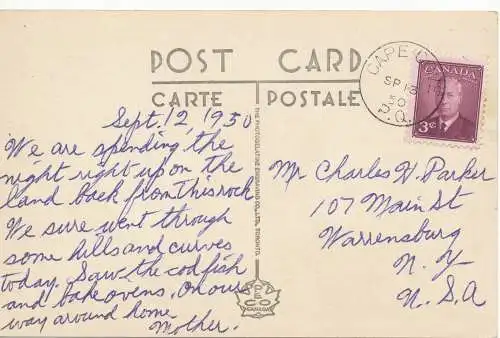 POST CARD
CARTE POSTALE
CAPE
SP 13
50
P.Q.
CANADA
3¢
Sept. 12, 1950
We are spending the
night right up on the
land back from this rock
We sure went through
some hills and curves
today. Saw the cod fish
and bake ovens, on our
way around home
Mother.
THE PHOTOGELATINE ENGRAVING CO., LTD., TORONTO.
PECO
CANADA
Mr Charles H. Parker
107 Main St
Warrensburg
N. Y
U. S. A